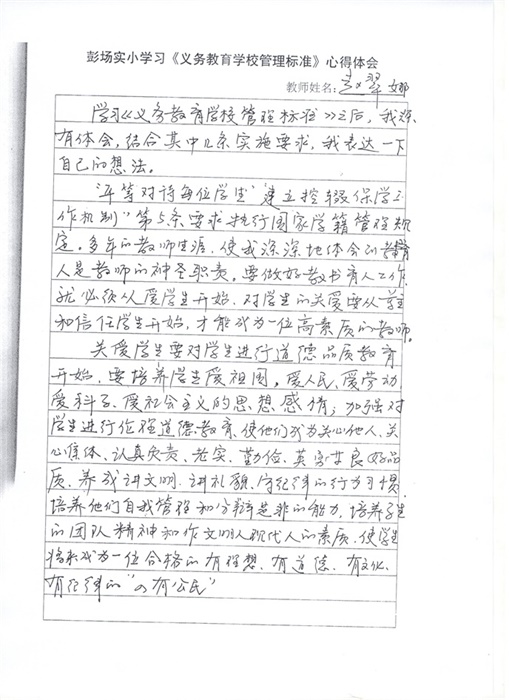 彭场实小学习《义务教育学校管理标准》心得体会
教师姓名：赵翠娜
学习《义务教育学校管理标准》之后，我深
有体会，结合其中几条实施要求，我表达一下
自己的想法。
"平等对待每位学生""建立控辍保学工
作机制"第5条要求执行国家学籍管理规
定。多年的教师生涯，使我深深地体会到教育
人是教师的神圣职责。要做好教书育人工作，
就必须从爱学生开始，对学生的关爱要从尊重
和信任学生开始，才能成为一位高素质的教师。
关爱学生要对学生进行道德品质教育
开始，要培养学生爱祖国，爱人民，爱劳动
爱科学、爱社会主义的思想感情；加强对
学生进行伦理道德教育，使他们成为关心他人、关
心集体、认真负责、老实、勤俭、英勇等良好品
质、养成讲文明、讲礼貌、守纪律的行为习惯，
培养他们自我管理和分辩是非的能力，培养学生
的团队精神和作文明人现代人的素质，使学生
将来成为一位合格的有理想、有道德、有文化、
有纪律的"四有公民"